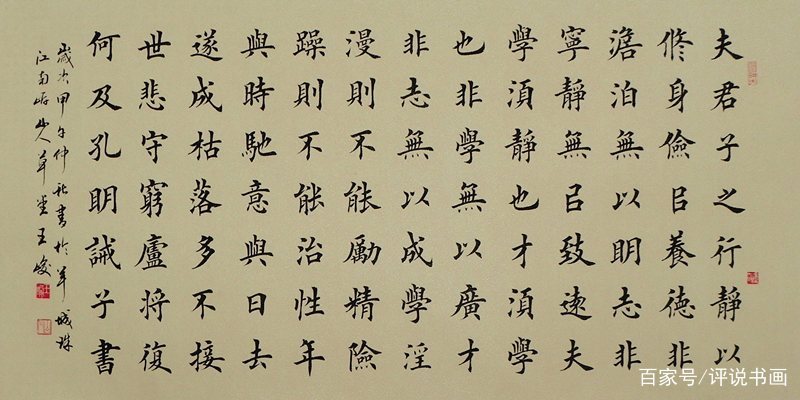 夫君子之行靜以
修身儉㠯養德非
澹泊無以明志非
寧靜無㠯致遠夫
學須靜也才須學
也非學無以廣才
非志無以成學淫
漫則不能勵精險
躁則不能治性年
與時馳意與日去
遂成枯落多不接
世悲守窮廬將復
何及孔明誡子書
歲次甲午仲秋書於羊城珠
江南岸山人草堂王峻
百家号/评说书画